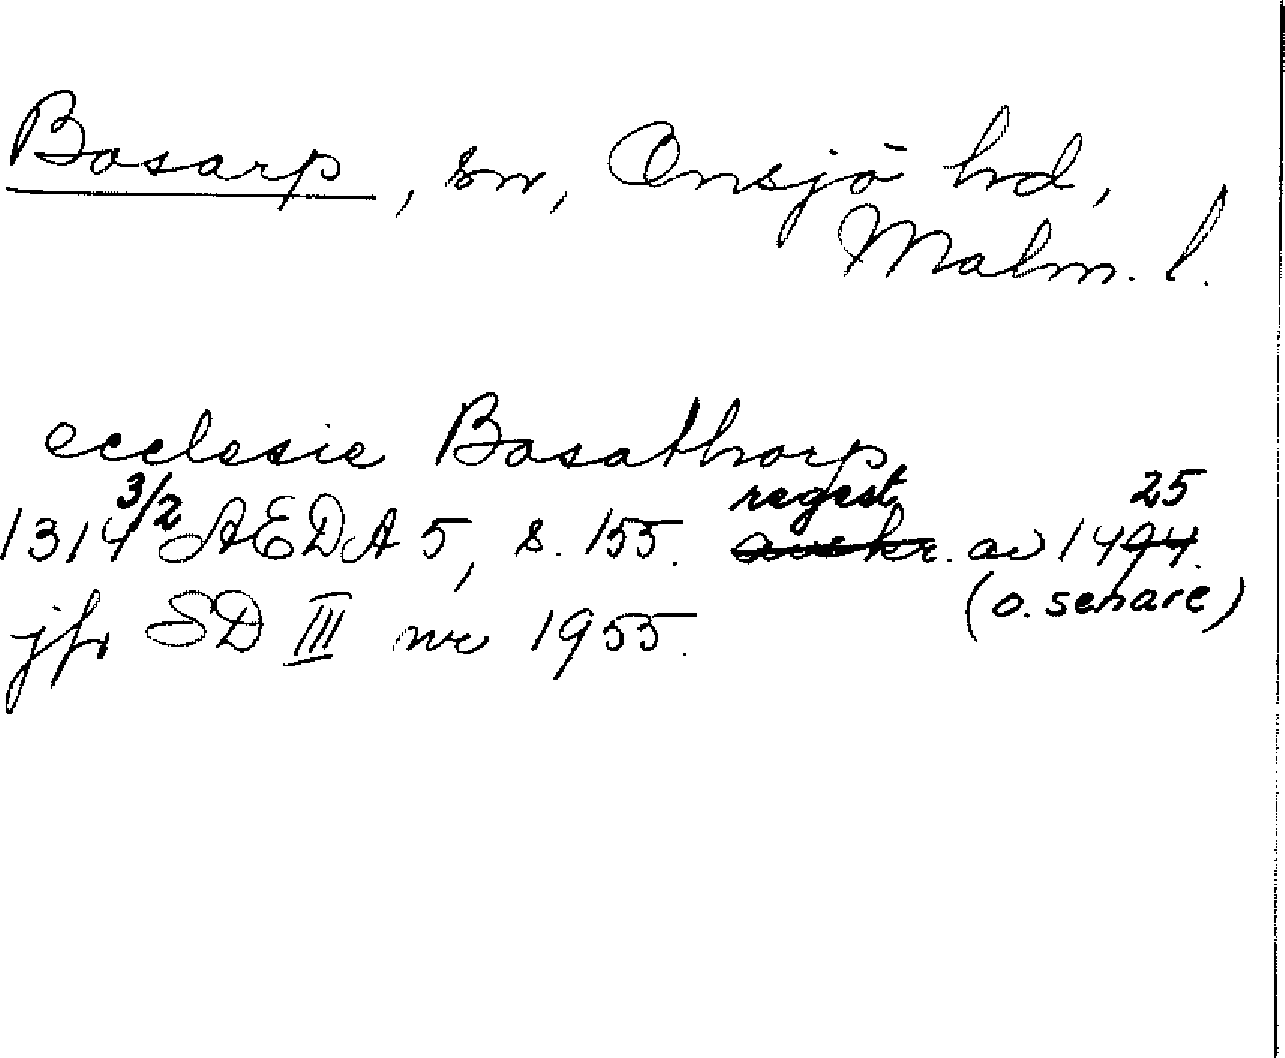 Bosarp, sn, Onsjö hd,
Malm. l.
ecclesie Bosathorp
1314 3/2 AEDA 5, s. 155. regest avskr. av 1494. 25
(o. senare)
jfr SD III nr 1955.